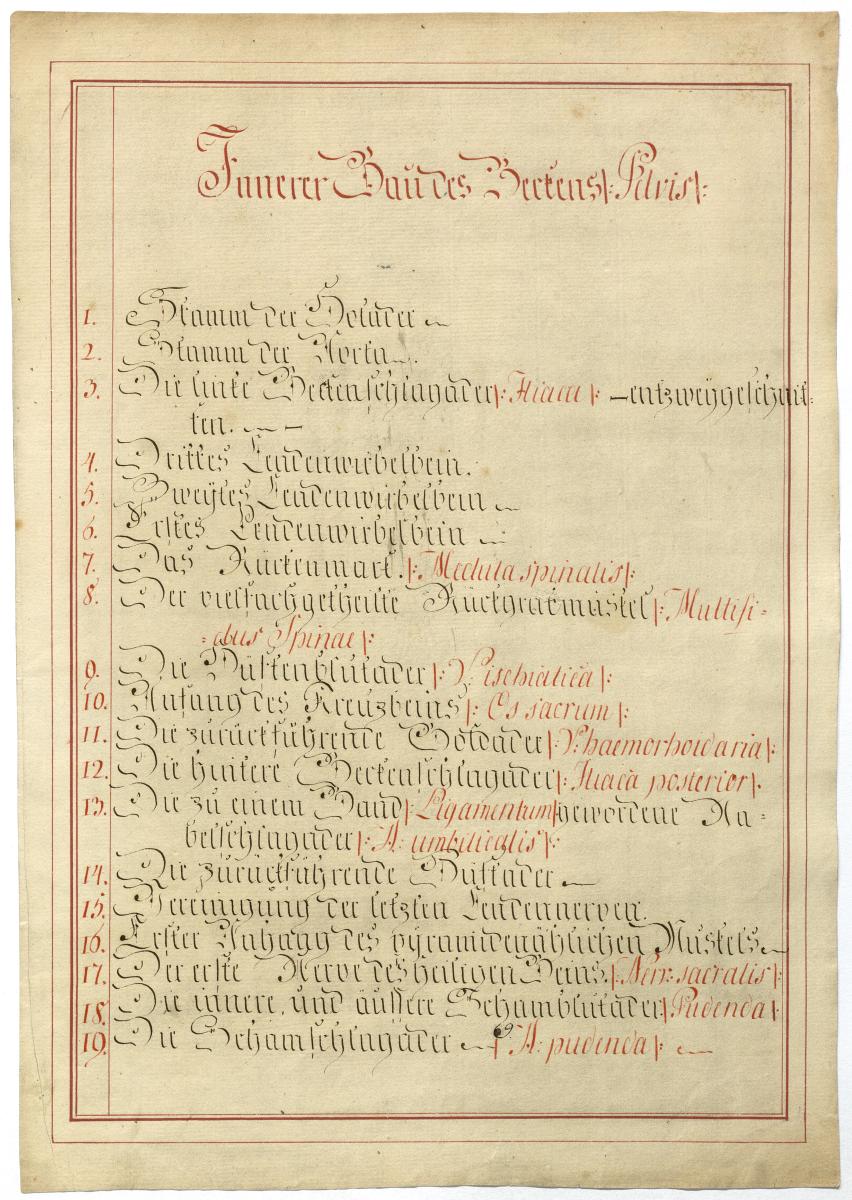 Innerer Bau des Beckens |: Pelvis |:
1. Stamm der Holader
2. Stamm der Aorta.
3. Die linke Beckenschlagader |: Iliaca |: – entzweygeschnit-
ten. –
4. Drittes Lendenwirbelbein.
5. Zweytes Lendenwirbelbein
6. Erstes Lendenwirbelbein
7. Das Rückenmark. |: Medula spinalis |:
8. Der vielfachgetheilte Rückgratmuskel |: Multifi-
-dus Spinae |:
9. Die Hüftenblutader |: V. ischiatica |:
10. Anfang des Kreuzbeins |: Os sacrum |:
11. Die zurückführende Goldader |: V. haemorhoidaria |:
12. Die hintere Beckenschlagader |: Iliaca posterior |:
13. Die zu einem Band |: Ligamentum |: gewordene Na-
belschlagader |: A: umbilicalis |:
14. Die zurückführende Hüftader
15. Vereinigung der letzten Lendennerven.
16. Erster Anhang des pyramidenähnlichen Muskels
17. Der erste Nerve des heiligen Beins. |: Nerv: sacralis |:
18. Die innere, und äussere Schamblutader |: Pudenda |:
19. Die Schamschlagader |: A: pudenda |: